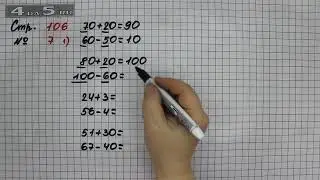 4 DA 5.RU
Стр. 106
№ 7 1)
70+20=90
60-50=10
80+20=100
100-60=
24+3=
56-4=
51+30=
67-40=